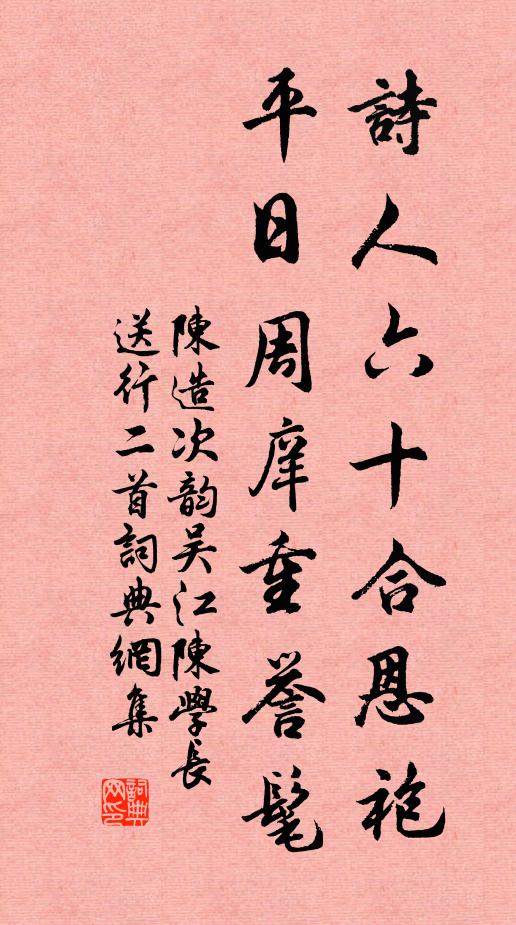 詩人六十合恩袍
平日周庠重譽髦
陳造次韵吴江陳學長
送行二首詞典網集
詞典网印